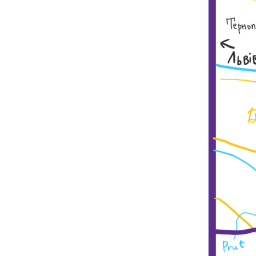 Терноп
← Львів
Prut